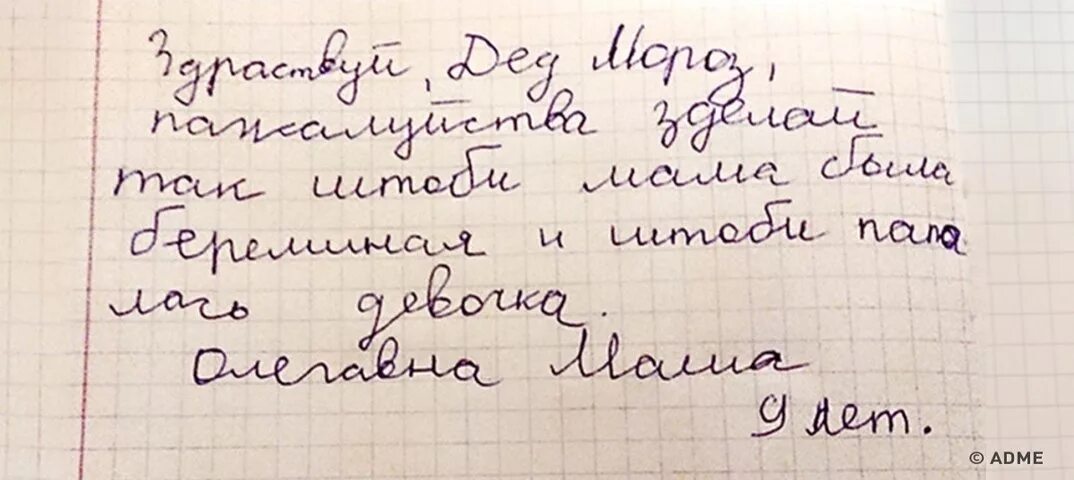 Здраствуй, Дед Мороз,
пажалуйства зделай
так штоби мама была
береминая и штоби папа
лась девочка.
Олегавна Маша
9 лет.
© ADME